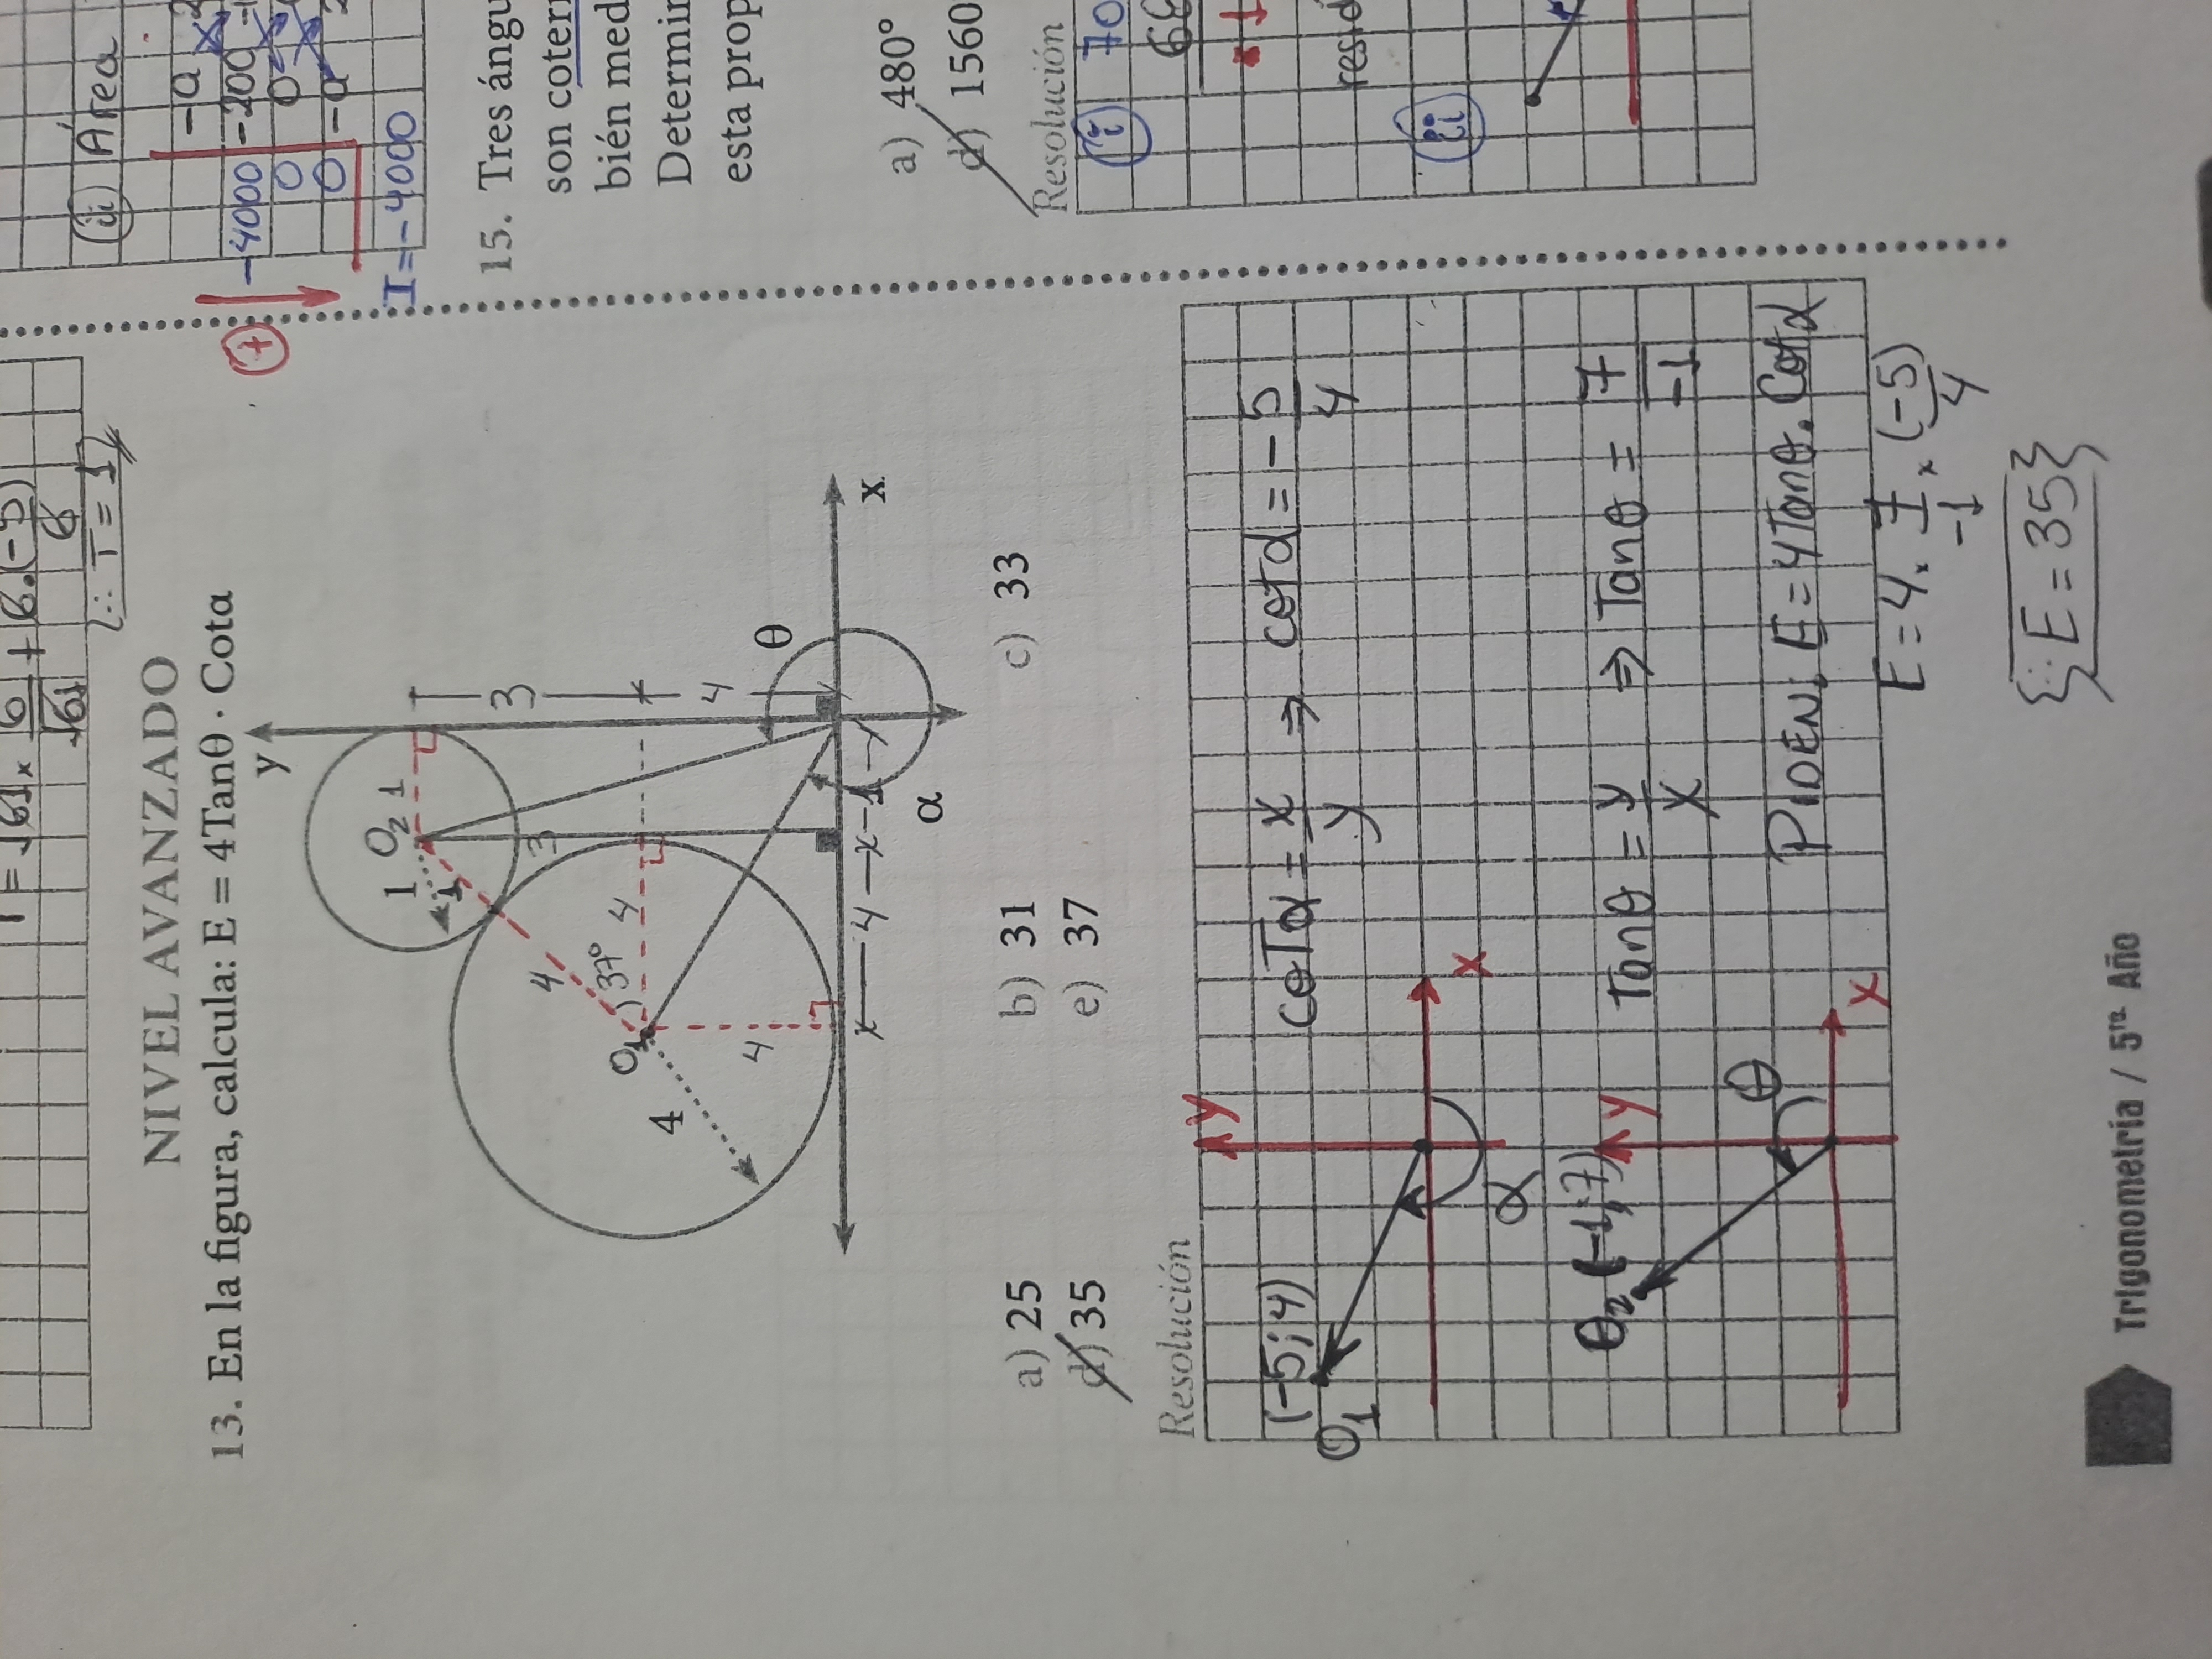 T = √61 × 6/√61 + 6·(-5)/6
∴ T = 1
NIVEL AVANZADO
13. En la figura, calcula: E = 4Tanθ · Cotα
y
O₂
1
1
1
3
3
4
37°
O₁
4
4
4
4
θ
x
4
1
α
a) 25
b) 31
c) 33
d) 35
e) 37
Resolución
y
(-5; 4)
O₁
x
α
CoTα = x/y ⇒ cotα = -5/4
O₂ (-1; 7)
y
θ
x
Tanθ = y/x ⇒ Tanθ = 7/-1
PIDEN: E = 4Tanθ. Cotα
E = 4 × 7/-1 × (-5)/4
∴ E = 35
Trigonometría / 5to. Año
(ii) Área
-a 2
-4000 -200
0 0
0 -a 2
(+)
I = -4000
15. Tres ángu
son coter
bién med
Determin
esta prop
a) 480°
d) 1560
Resolución
i 70
68
1
resid
ii